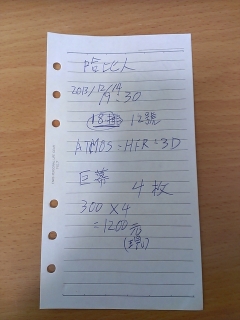 哈比人
2013/12/14
19:30
18排 12號
ATMOS-HFR-3D
巨幕
4枚
300 X 4
=1200元